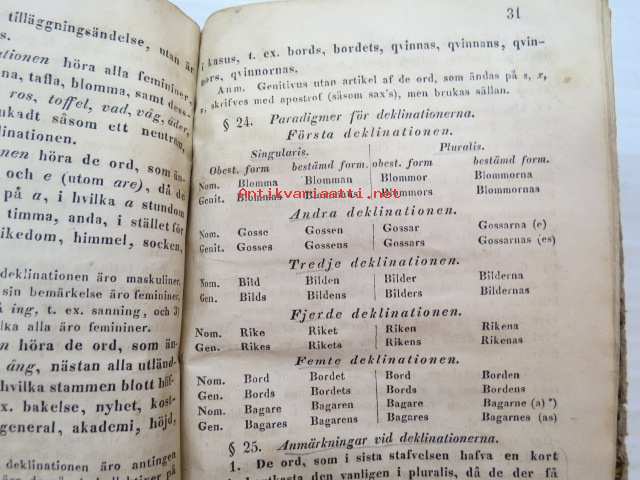 tilläggningsändelse, utan är
s.
ationen höra alla femininer,
na, tafla, blomma, samt dess-
ros, toffel, vad, våg, åder,
unkadt såsom ett neutrum,
lination.
nen höra de ord, som än-
och e (utom are), då de
på a, i hvilka a stundom
timma, anda, i stället för
ikedom, himmel, socken,
deklinationen äro maskuliner,
sin bemärkelse äro femininer,
å ing, t. ex. sanning, och 3)
lka alla äro femininer.
en höra de ord, som än-
ång, nästan alla utländ-
hvilka stammen blott häf-
ex. bakelse, nyhet, kost-
general, akademi, höjd,
deklinationen äro antingen
31
i kasus, t. ex. bords, bordets, qvinnas, qvinnans, qvin-
nors, qvinnornas.
Anm. Genitivus utan artikel af de ord, som ändas på s, x,
skrifves med apostrof (såsom sax's), men brukas sällan.
§ 24. Paradigmer för deklinationerna.
Första deklinationen.
Singularis. Pluralis.
Obest. form bestämd form. obest. form bestämd form.
Nom. Blomma Blomman Blommor Blommorna
Genit. Blommas Blommans Blommors Blommornas
Antikvariaatti.net
Andra deklinationen.
Nom. Gosse Gossen Gossar Gossarna (e)
Genit. Gosses Gossens Gossars Gossarnas (es)
Tredje deklinationen.
Nom. Bild Bilden Bilder Bilderna
Gen. Bilds Bildens Bilders Bildernas
Fjerde deklinationen.
Nom. Rike Riket Riken Rikena
Gen. Rikes Rikets Rikens Rikenas
Femte deklinationen.
Nom. Bord Bordet Bord Borden
Gen. Bords Bordets Bords Bordens
Nom. Bagare Bagaren Bagare Bagarne (a) *)
Gen. Bagares Bagarens Bagares Bagarnes (as)
§ 25. Anmärkningar vid deklinationerna.
1. De ord, som i sista stafvelsen hafva en kort
den vanligen i pluralis, då de der få